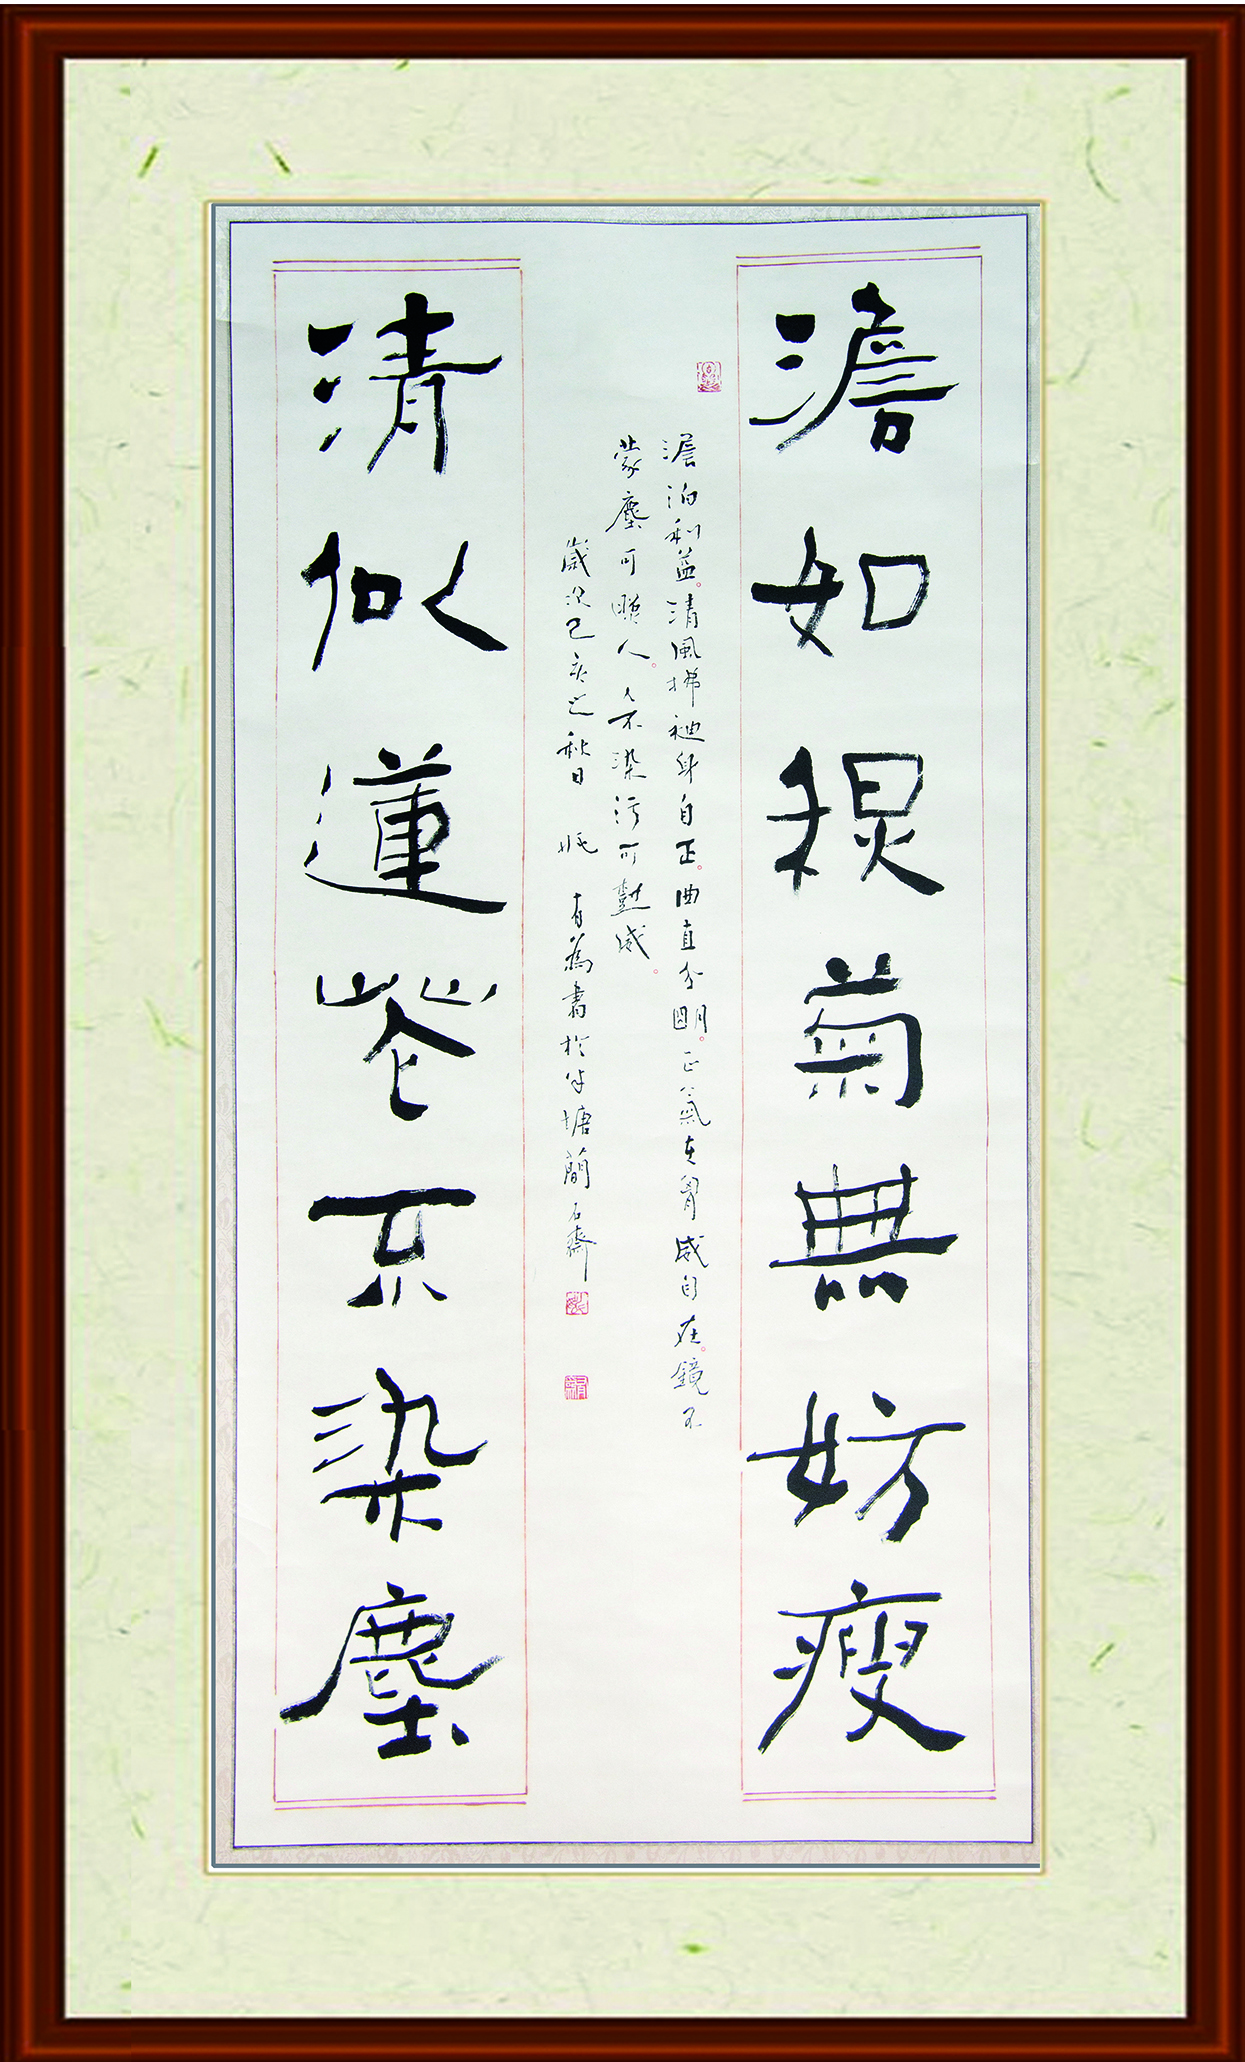 澹如穆菊無妨瘦
澹泊利益。清風拂袖身自正。曲直分明。正氣在胷威自在。鏡不
蒙塵可照人。人不染污可懟
歲次己亥之秋日 有為書於半塘蘭石齋
清似蓮花不染塵